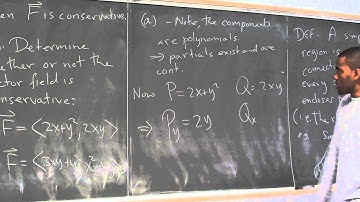 en F⃗ is conservative.
Determine
ether or not the
ctor field is
nservative:
F⃗ = ⟨2x+y², 2xy⟩
F⃗ = ⟨3xy+y², x²
(a) - Note, the components
are polynomials.
⇒ partials exist and are
cont.
Now P=2x+y² Q=2xy
⇒ P_y=2y Q_x
DEF: A simp
region is
connect
every
encloses
(i.e. the